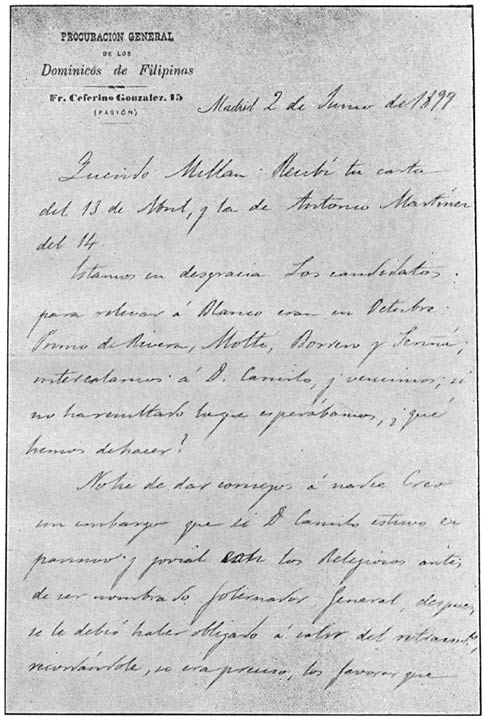 PROCURACION GENERAL
DE LOS
Dominicos de Filipinas
Fr. Ceferino Gonzalez, 15
(PASIÓN)
Madrid 2 de Junio de 1897
Querido Millan: Recibí tu carta
del 13 de Abril, y la de Antonio Martinez
del 14.
Estamos en desgracia Los candidatos
para relevar á Blanco eran en Octubre:
Primo de Rivera, Molto, Borrero y
intercalamos á D. Camilo, y vencimos; si
no ha resultado lo que esperábamos, ¿qué
hemos de hacer?
No he de dar consejos á nadie Creo
sin embargo que si D Camilo estuvo
y jovial con los Religiosos antes
de ser nombrado Gobernador General, despues
se le debió haber obligado á salir del retraimto,
recordándole, si era preciso, los favores que